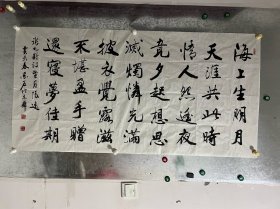 海上生明月
天涯共此時
情人怨遥夜
竟夕起想思
滅燭憐光滿
披衣覺露滋
不堪盈手贈
還寢夢佳期